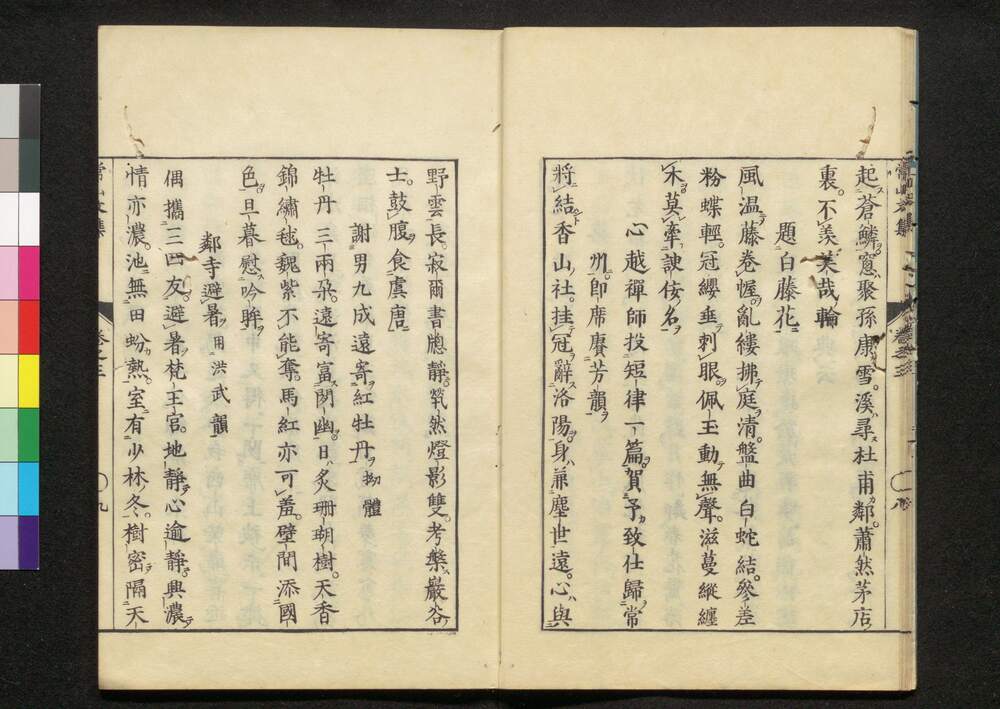 起蒼鱗窓聚孫康雪溪尋杜甫鄰蕭然茅店
裏不羨美哉輪
題白藤花
風温藤巻幄亂縷拂庭清盤曲白蛇結參差
粉蝶輕冠纓垂刺眼佩玉動無聲滋蔓縱纏
木莫牽諛佞名
心越禪師投短律一篇賀予致仕歸常
州即席賡芳韻
將結香山社挂冠辭洛陽身兼塵世遠心與
野雲長寂爾書牕靜煢然燈影雙考槃巖谷
士鼓腹食虞唐
謝男九成遠寄紅牡丹拗體
牡丹三兩朶遠寄富閉幽日炙珊瑚樹天香
錦繡毬魏紫不能奪馬紅亦可羞壁間添國
色旦暮慰吟眸
鄰寺避暑用洪武韻
偶攜三四友避暑梵王宮地靜心逾靜興濃
情亦濃池無田蚡熱室有少林冬樹密隔天
常山文集 卷之三 九